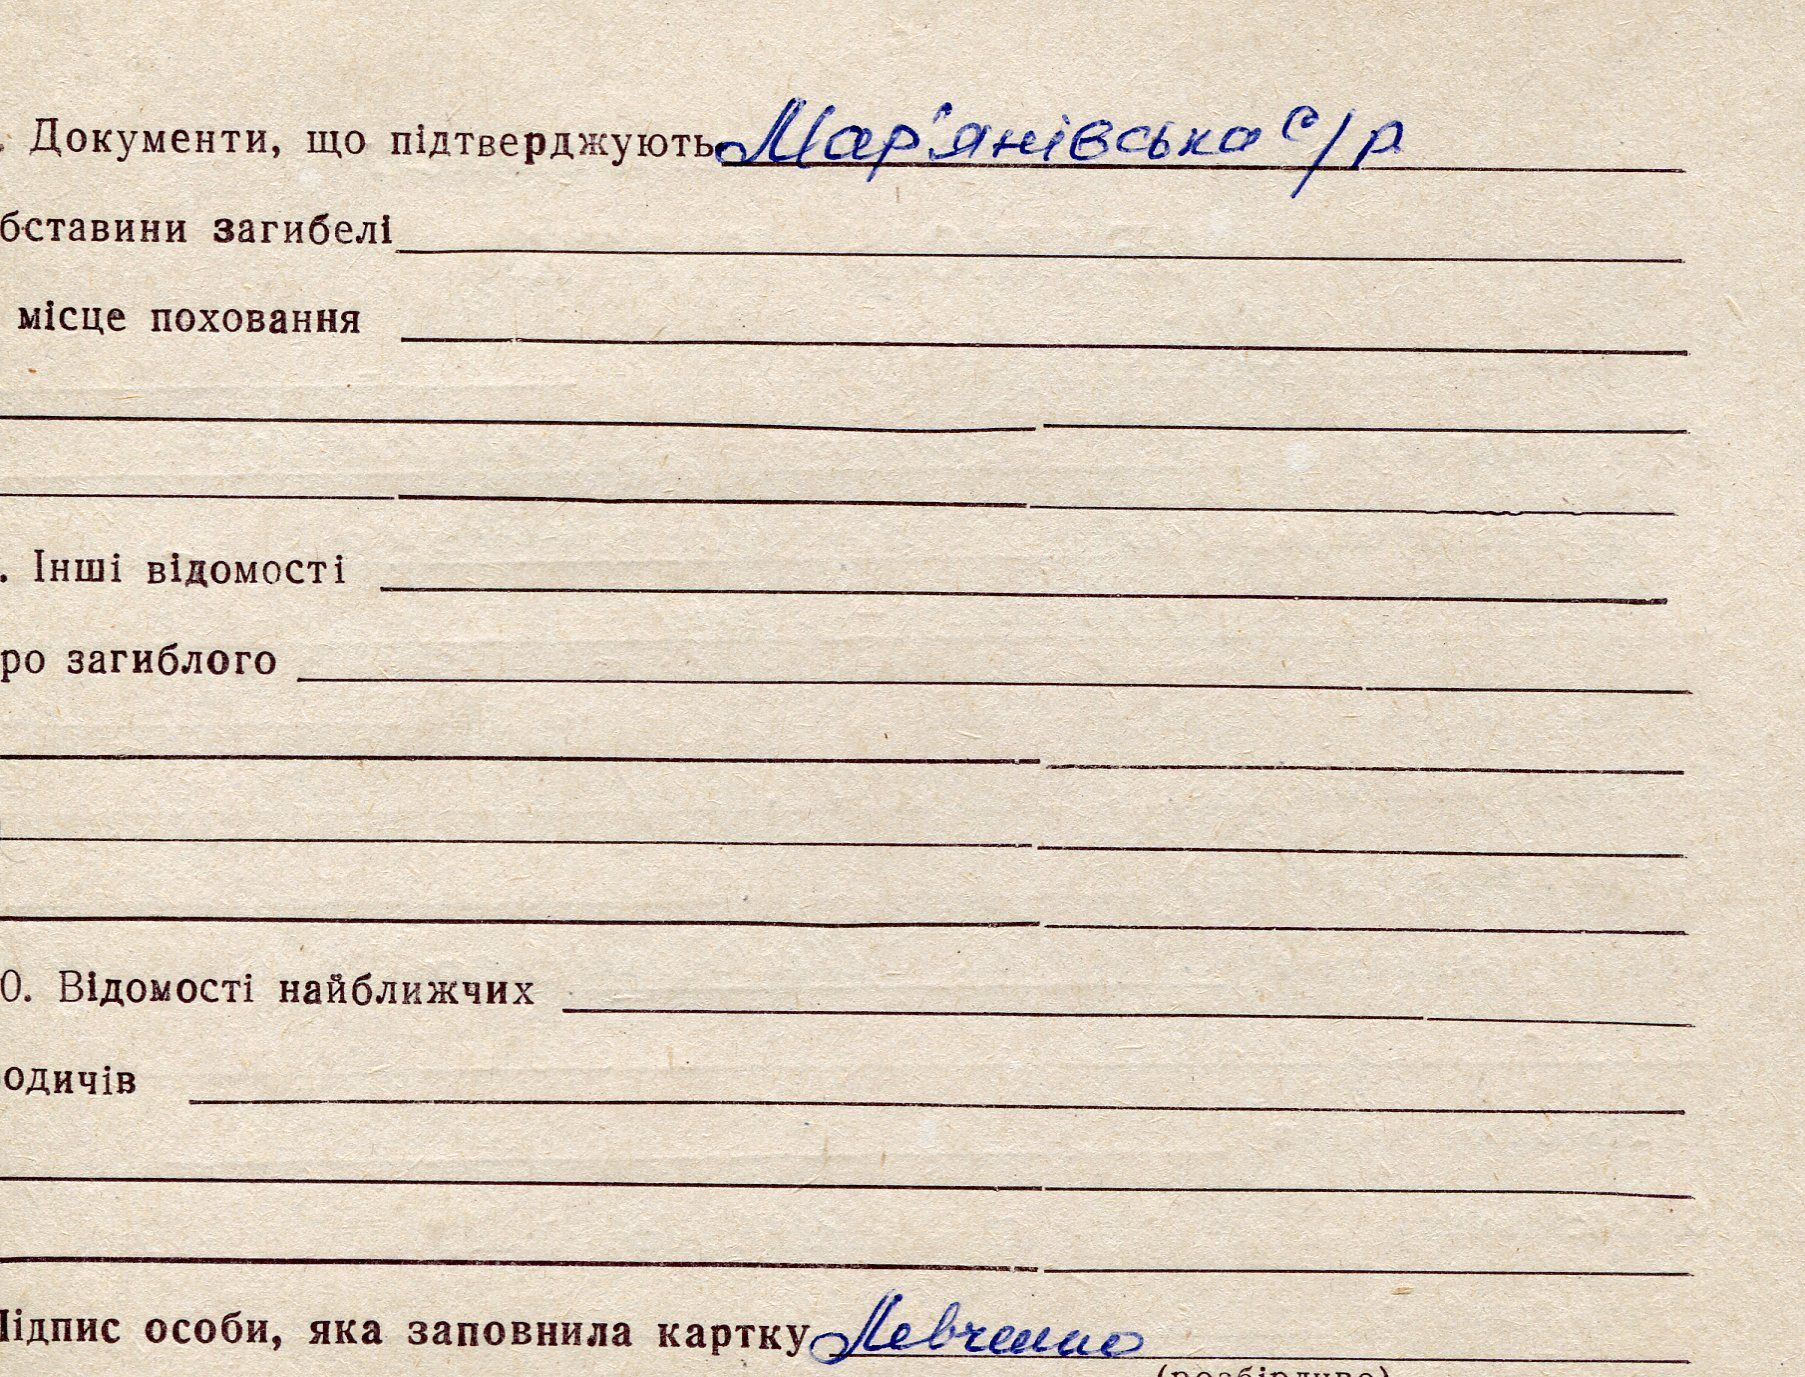 . Документи, що підтверджують Мар'янівська с/р
бставини загибелі
місце поховання
. Інші відомості
ро загиблого
0. Відомості найближчих
одичів
Підпис особи, яка заповнила картку Левченко
(розбірливо)